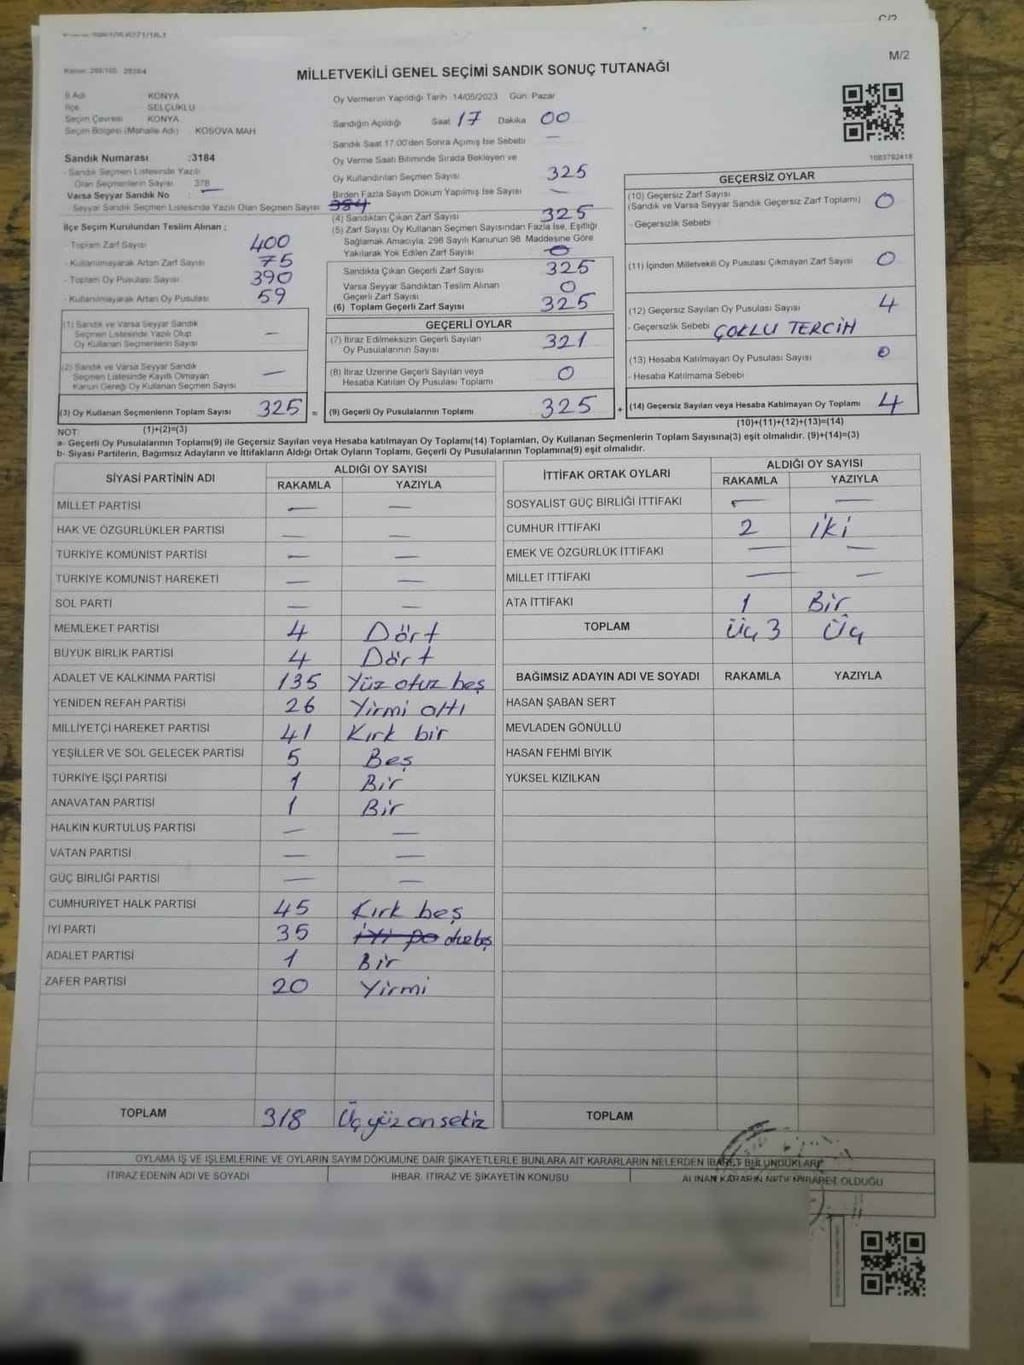 M/2
MİLLETVEKİLİ GENEL SEÇİMİ SANDIK SONUÇ TUTANAĞI
İl Adı KONYA
İlçe SELÇUKLU
Seçim Çevresi KONYA
Seçim Bölgesi (Mahalle Adı) : KOSOVA MAH
Sandık Numarası :3184
- Sandık Seçmen Listesinde Yazılı
Olan Seçmenlerin Sayısı 378
Varsa Seyyar Sandık No : —
- Seyyar Sandık Seçmen Listesinde Yazılı Olan Seçmen Sayısı
İlçe Seçim Kurulundan Teslim Alınan ;
- Toplam Zarf Sayısı 400
- Kullanılmayarak Artan Zarf Sayısı 75
- Toplam Oy Pusulası Sayısı 390
- Kullanılmayarak Artan Oy Pusulası 59
(1) Sandık ve Varsa Seyyar Sandık
Seçmen Listesinde Yazılı Olup
Oy Kullanan Seçmenlerin Sayısı —
(2) Sandık ve Varsa Seyyar Sandık
Seçmen Listesinde Kayıtlı Olmayan
Kanun Gereği Oy Kullanan Seçmen Sayısı —
(3) Oy Kullanan Seçmenlerin Toplam Sayısı 325 =
(1)+(2)=(3)
Oy Vermenin Yapıldığı Tarih 14/05/2023 Gün Pazar
Sandığın Açıldığı Saat 17 Dakika 00
Sandık Saat 17.00'den Sonra Açılmış İse Sebebi —
Oy Verme Saati Bitiminde Sırada Bekleyen ve
Oy Kullandırılan Seçmen Sayısı 325
Birden Fazla Sayım Döküm Yapılmış İse Sayısı —
(4) Sandıktan Çıkan Zarf Sayısı 325
(5) Zarf Sayısı Oy Kullanan Seçmen Sayısından Fazla İse, Eşitliği
Sağlamak Amacıyla, 298 Sayılı Kanunun 98 Maddesine Göre
Yakılarak Yok Edilen Zarf Sayısı 0
Sandıkta Çıkan Geçerli Zarf Sayısı 325
Varsa Seyyar Sandıktan Teslim Alınan
Geçerli Zarf Sayısı 0
(6) Toplam Geçerli Zarf Sayısı 325
GEÇERLİ OYLAR
(7) İtiraz Edilmeksizin Geçerli Sayılan
Oy Pusulalarının Sayısı 321
(8) İtiraz Üzerine Geçerli Sayılan veya
Hesaba Katılan Oy Pusulası Toplamı 0
(9) Geçerli Oy Pusulalarının Toplamı 325 +
1083792418
GEÇERSİZ OYLAR
(10) Geçersiz Zarf Sayısı
(Sandık ve Varsa Seyyar Sandık Geçersiz Zarf Toplamı) 0
- Geçersizlik Sebebi
(11) İçinden Milletvekili Oy Pusulası Çıkmayan Zarf Sayısı 0
(12) Geçersiz Sayılan Oy Pusulası Sayısı 4
- Geçersizlik Sebebi ÇOKLU TERCİH
(13) Hesaba Katılmayan Oy Pusulası Sayısı 0
- Hesaba Katılmama Sebebi
(14) Geçersiz Sayılan veya Hesaba Katılmayan Oy Toplamı 4
(10)+(11)+(12)+(13)=(14)
NOT:
a- Geçerli Oy Pusulalarının Toplamı(9) ile Geçersiz Sayılan veya Hesaba katılmayan Oy Toplamı(14) Toplamları, Oy Kullanan Seçmenlerin Toplam Sayısına(3) eşit olmalıdır. (9)+(14)=(3)
b- Siyasi Partilerin, Bağımsız Adayların ve İttifakların Aldığı Ortak Oyların Toplamı, Geçerli Oy Pusulalarının Toplamına(9) eşit olmalıdır.
SİYASİ PARTİNİN ADI ALDIĞI OY SAYISI
RAKAMLA YAZIYLA
MİLLET PARTİSİ — —
HAK VE ÖZGÜRLÜKLER PARTİSİ — —
TÜRKİYE KOMÜNİST PARTİSİ — —
TÜRKİYE KOMÜNİST HAREKETİ — —
SOL PARTİ — —
MEMLEKET PARTİSİ 4 Dört
BÜYÜK BİRLİK PARTİSİ 4 Dört
ADALET VE KALKINMA PARTİSİ 135 Yüz otuz beş
YENİDEN REFAH PARTİSİ 26 Yirmi altı
MİLLİYETÇİ HAREKET PARTİSİ 41 Kırk bir
YEŞİLLER VE SOL GELECEK PARTİSİ 5 Beş
TÜRKİYE İŞÇİ PARTİSİ 1 Bir
ANAVATAN PARTİSİ 1 Bir
HALKIN KURTULUŞ PARTİSİ — —
VATAN PARTİSİ — —
GÜÇ BİRLİĞİ PARTİSİ — —
CUMHURİYET HALK PARTİSİ 45 Kırk beş
İYİ PARTİ 35
ADALET PARTİSİ 1 Bir
ZAFER PARTİSİ 20 Yirmi
TOPLAM 318 Üçyüz onsekiz
İTTİFAK ORTAK OYLARI ALDIĞI OY SAYISI
RAKAMLA YAZIYLA
SOSYALİST GÜÇ BİRLİĞİ İTTİFAKI — —
CUMHUR İTTİFAKI 2 iki
EMEK VE ÖZGÜRLÜK İTTİFAKI — —
MİLLET İTTİFAKI — —
ATA İTTİFAKI 1 Bir
TOPLAM Üç 3 Üç
BAĞIMSIZ ADAYIN ADI VE SOYADI RAKAMLA YAZIYLA
HASAN ŞABAN SERT
MEVLADEN GÖNÜLLÜ
HASAN FEHMİ BIYIK
YÜKSEL KIZILKAN
TOPLAM
OYLAMA İŞ VE İŞLEMLERİNE VE OYLARIN SAYIM DÖKÜMÜNE DAİR ŞİKAYETLERLE BUNLARA AİT KARARLARIN NELERDEN İBARET BULUNDUKLARI
İTİRAZ EDENİN ADI VE SOYADI İHBAR, İTİRAZ VE ŞİKAYETİN KONUSU ALINAN KARARIN NEDEN İBARET OLDUĞU